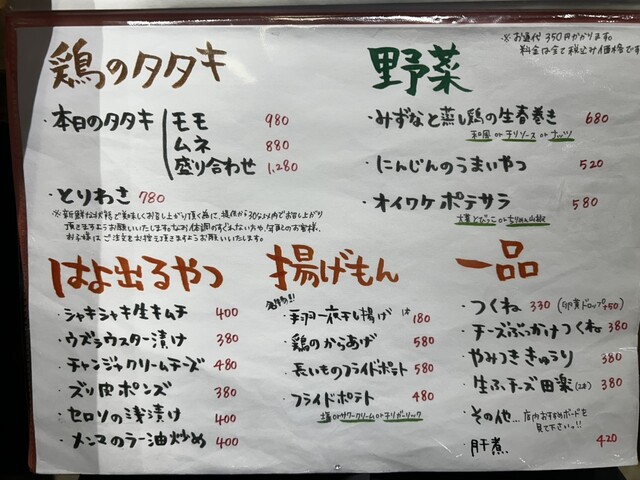 ※お通代350円かかります。
料金は全て税込み価格です
鶏のタタキ
・本日のタタキ モモ 980
ムネ 880
盛り合わせ 1,280
・とりわさ 780
※新鮮な状態で美味しくお召し上がり頂く為に、提供から30分以内でお召し上がり
頂きますようお願いいたします。なお体調のすぐれない方や、年配のお客様、
お子様にはご注文をお控え頂きますようお願いいたします。
野菜
・みずなと蒸し鶏の生春巻き 680
和風 or チリソース or ナッツ
・にんじんのうまいやつ 520
・オイワケポテサラ 580
大葉とびっこ or
はよ出るやつ
・シャキシャキ生キムチ 400
・ウズラウスター漬け 380
・チャンジャクリームチーズ 480
・ズリ皮ポンズ 380
・セロリの浅漬け 400
・メンマのラー油炒め 400
揚げもん
名物!!
・手羽一夜干し揚げ 1本 180
・鶏のからあげ 580
・長いものフライドポテト 580
・フライドポテト 480
塩 or サワークリーム or チリガーリック
一品
・つくね 330 (卵黄ドロップ+50)
・チーズぶっかけつくね 380
・やみつききゅうり 380
・生ふチーズ田楽(2本) 380
・その他… 店内おすすめボードを
見て下さいっ!!
・肝煮. 420